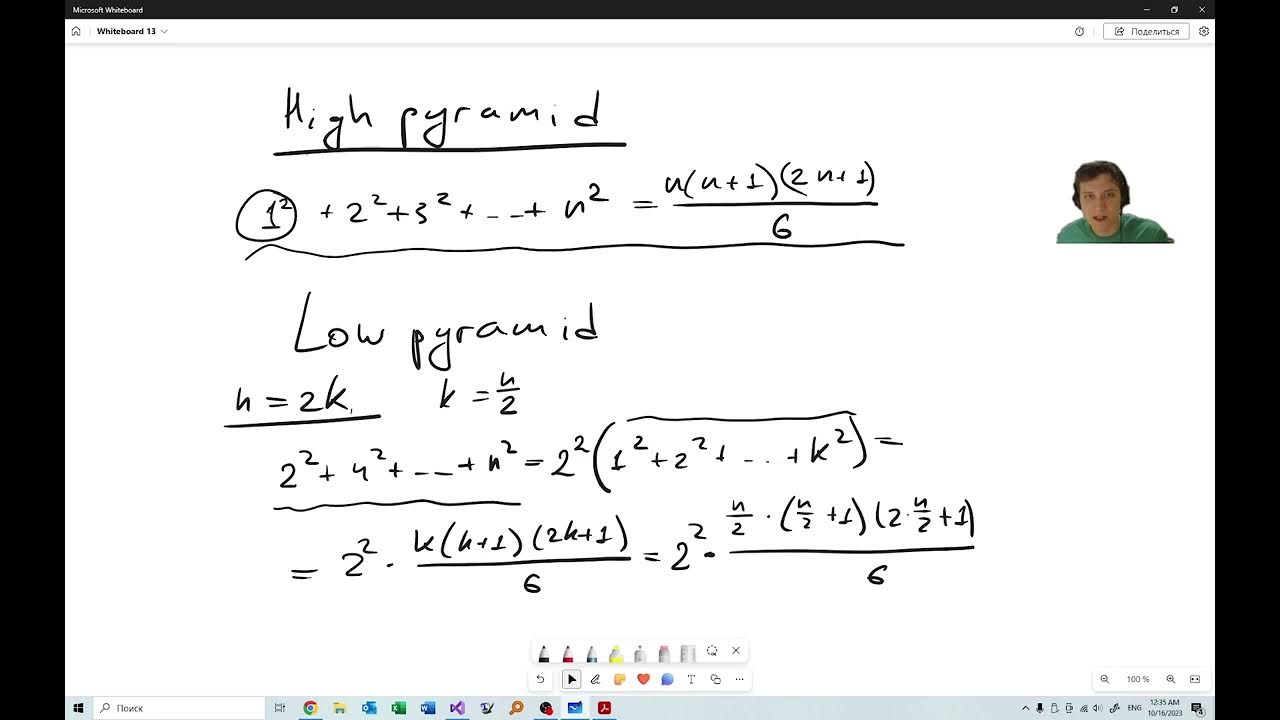 Microsoft Whiteboard
Whiteboard 13
Поделиться
High pyramid
1² + 2² + 3² + - - + n² = n(n+1)(2n+1) / 6
Low pyramid
n = 2k, k = n/2
2² + 4² + - - + n² = 2² (1² + 2² + - . + k²) =
= 2² · k(k+1)(2k+1) / 6 = 2² · n/2 · (n/2 + 1)(2 · n/2 + 1) / 6
100 %
Поиск
ENG
12:35 AM
10/16/2023
4